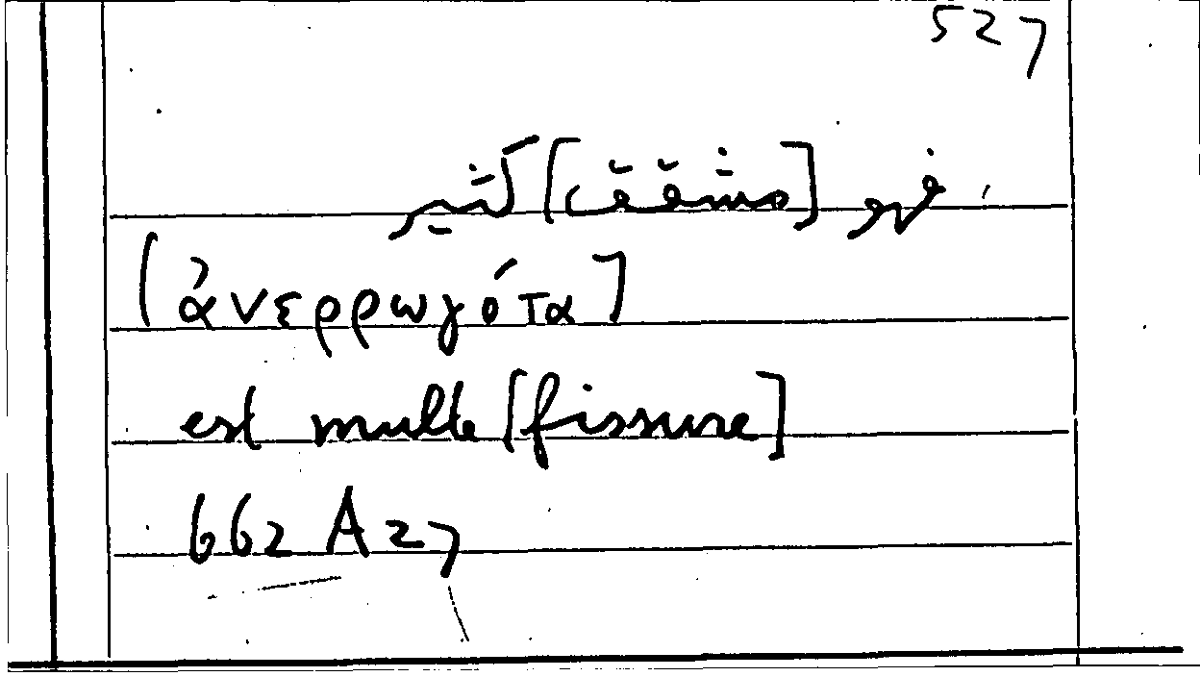 527
كثير
[ἀνερρωγότα]
est multe [fissure]
662 A 27